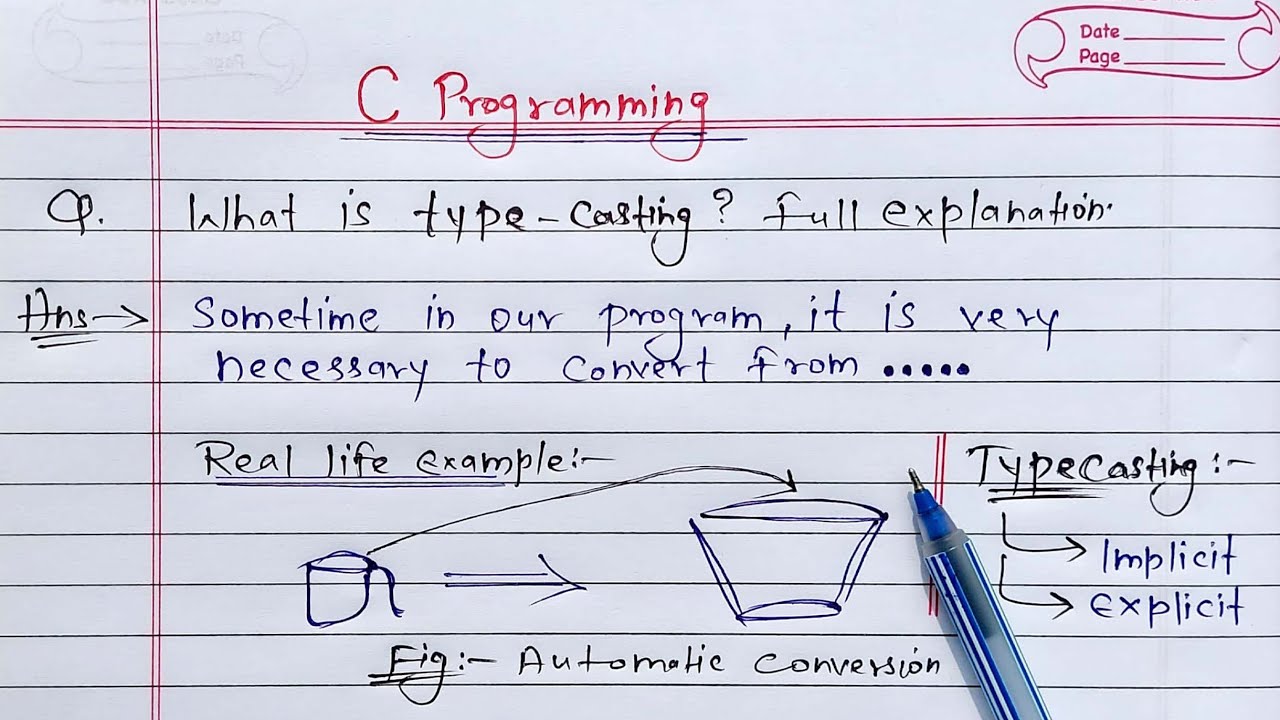 Date
Page
C Programming
Q. What is type-casting? full explanation.
Ans→ Sometime in our program, it is very
necessary to convert from .....
Real life example:-
Typecasting:-
Implicit
explicit
Fig:- Automatic conversion